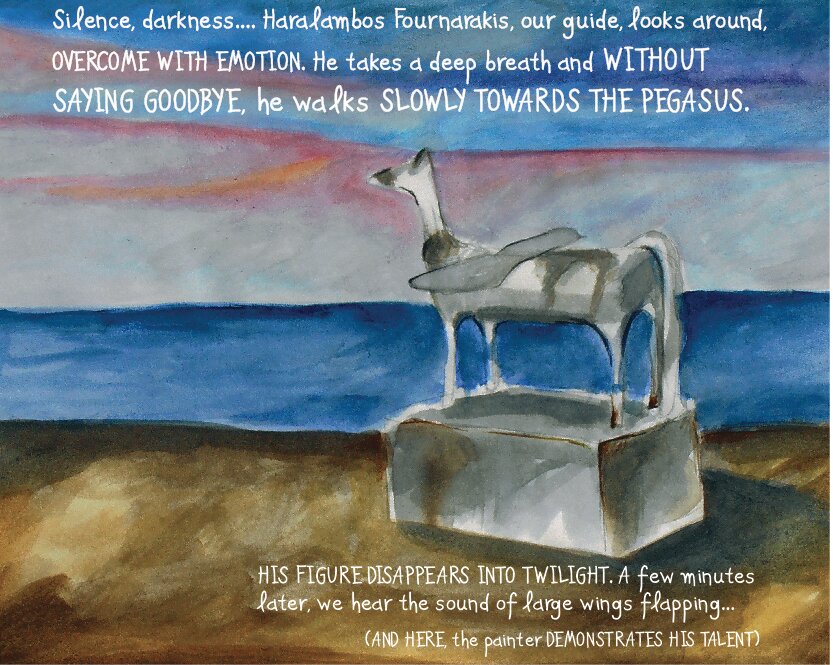 Silence, darkness.... Haralambos Fournarakis, our guide, looks around,
OVERCOME WITH EMOTION. He takes a deep breath and WITHOUT
SAYING GOODBYE, he walks SLOWLY TOWARDS THE PEGASUS.
HIS FIGURE DISAPPEARS INTO TWILIGHT. A few minutes
later, we hear the sound of large wings flapping...
(AND HERE, the painter DEMONSTRATES HIS TALENT)